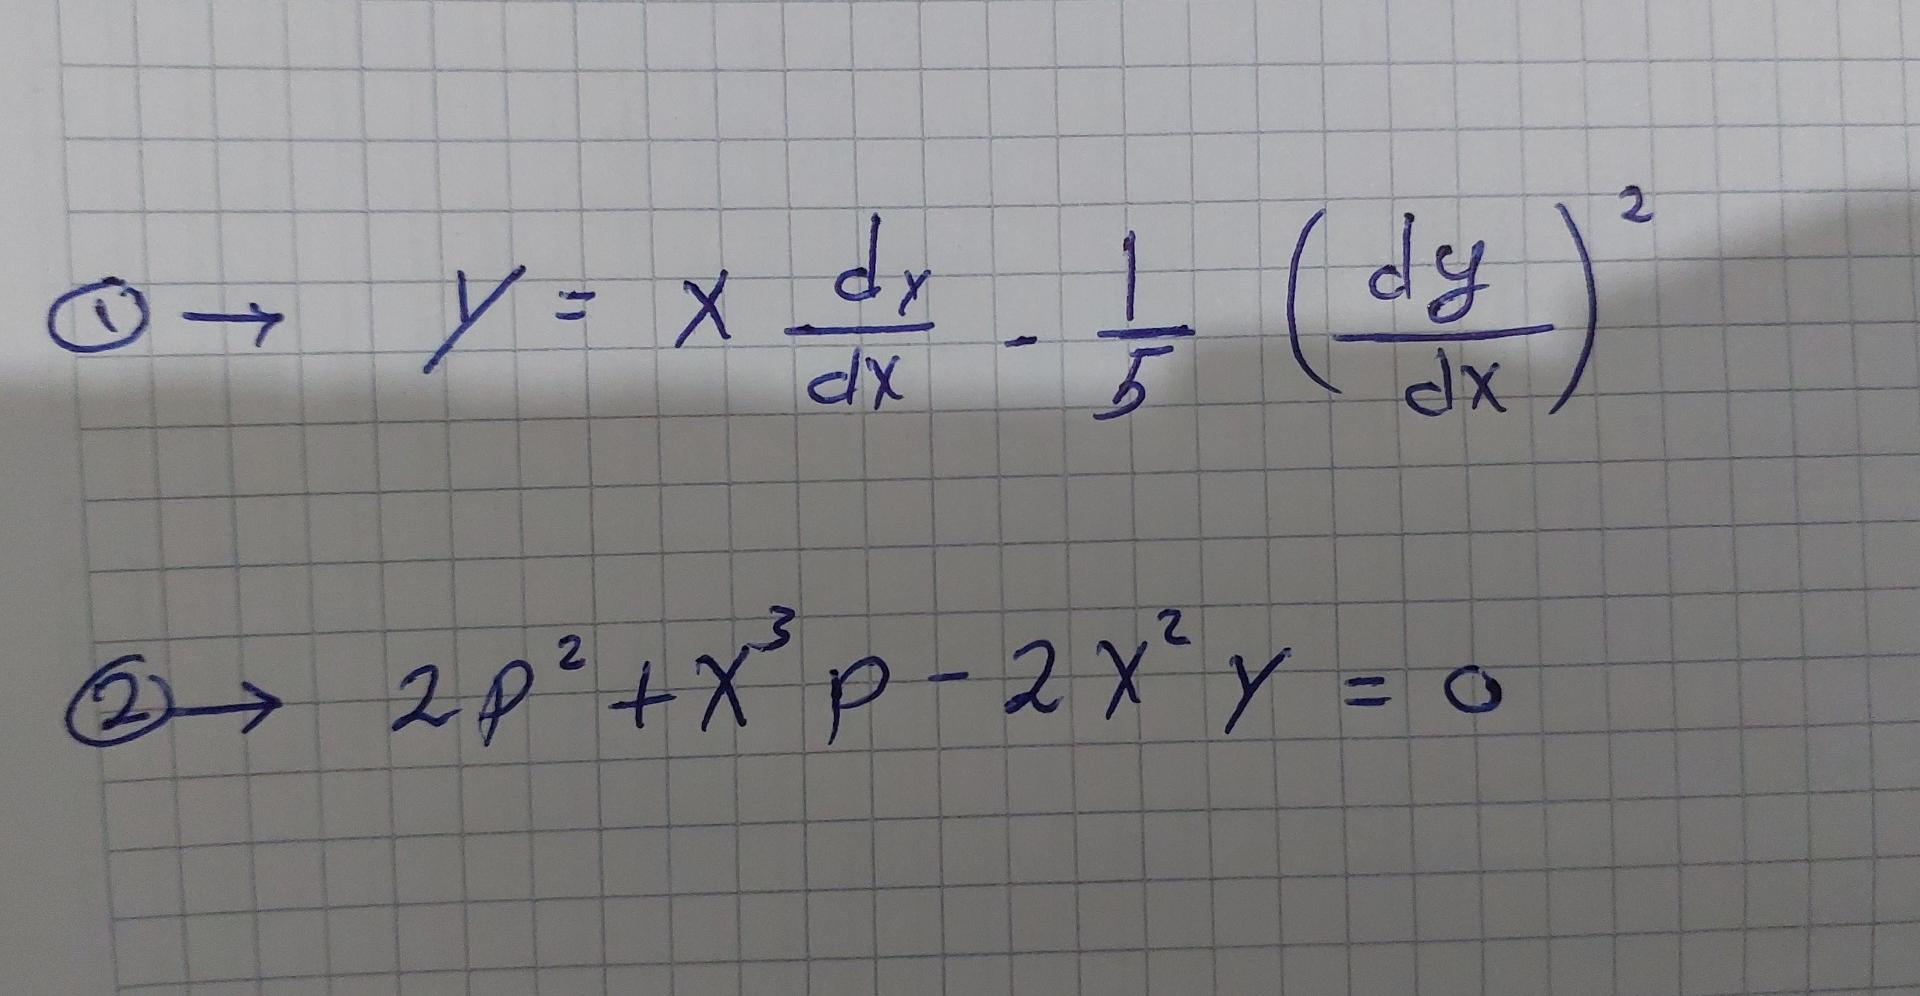 ① → y = x dy/dx - 1/5 (dy/dx)²
② → 2p² + x³p - 2x²y = 0